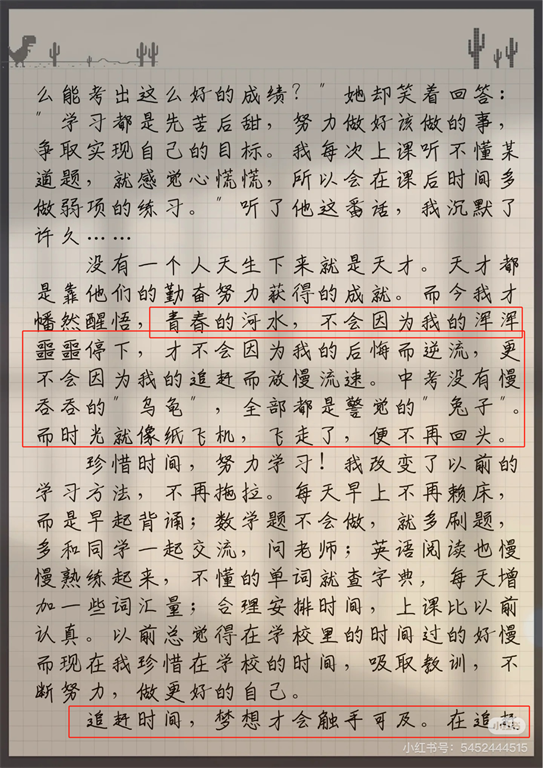 么能考出这么好的成绩？"她却笑着回答：
"学习都是先苦后甜，努力做好该做的事，
争取实现自己的目标。我每次上课听不懂某
道题，就感觉心慌慌，所以会在课后时间多
做弱项的练习。"听了他这番话，我沉默了
许久……
没有一个人天生下来就是天才。天才都
是靠他们的勤奋努力获得的成就。而今我才
幡然醒悟，青春的河水，不会因为我的浑浑
噩噩停下，才不会因为我的后悔而逆流，更
不会因为我的追赶而放慢流速。中考没有慢
吞吞的"乌龟"，全部都是警觉的"兔子"。
而时光就像纸飞机，飞走了，便不再回头。
珍惜时间，努力学习！我改变了以前的
学习方法，不再拖拉。每天早上不再赖床，
而是早起背诵；数学题不会做，就多刷题，
多和同学一起交流，问老师；英语阅读也慢
慢熟练起来，不懂的单词就查字典，每天增
加一些词汇量；合理安排时间，上课比以前
认真。以前总觉得在学校里的时间过的好慢
而现在我珍惜在学校的时间，吸取教训，不
断努力，做更好的自己。
追赶时间，梦想才会触手可及。在追
小红书号：5452444515